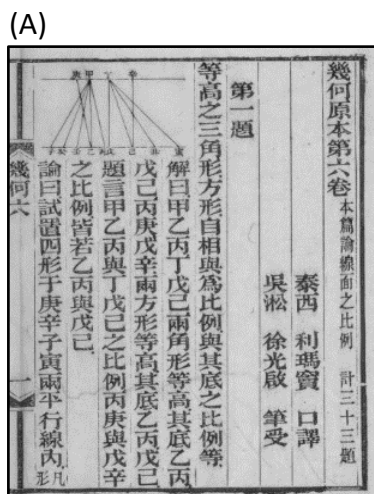 (A)
幾何原本第六卷 本篇論線面之比例 計三十三題
泰西 利瑪竇 口譯
吳淞 徐光啟 筆受
第一題
等高之三角形方形自相與爲比例與其底之比例等
解曰甲乙丙丁戊己兩角形等高其底乙丙
戊己丙庚戊辛兩方形等高其底乙丙戊己
題言甲乙丙與丁戊己之比例丙庚與戊辛
之比例皆若乙丙與戊己
論曰試置四形于庚辛子寅兩平行線內 凡形
庚甲丁辛
幾何六 一